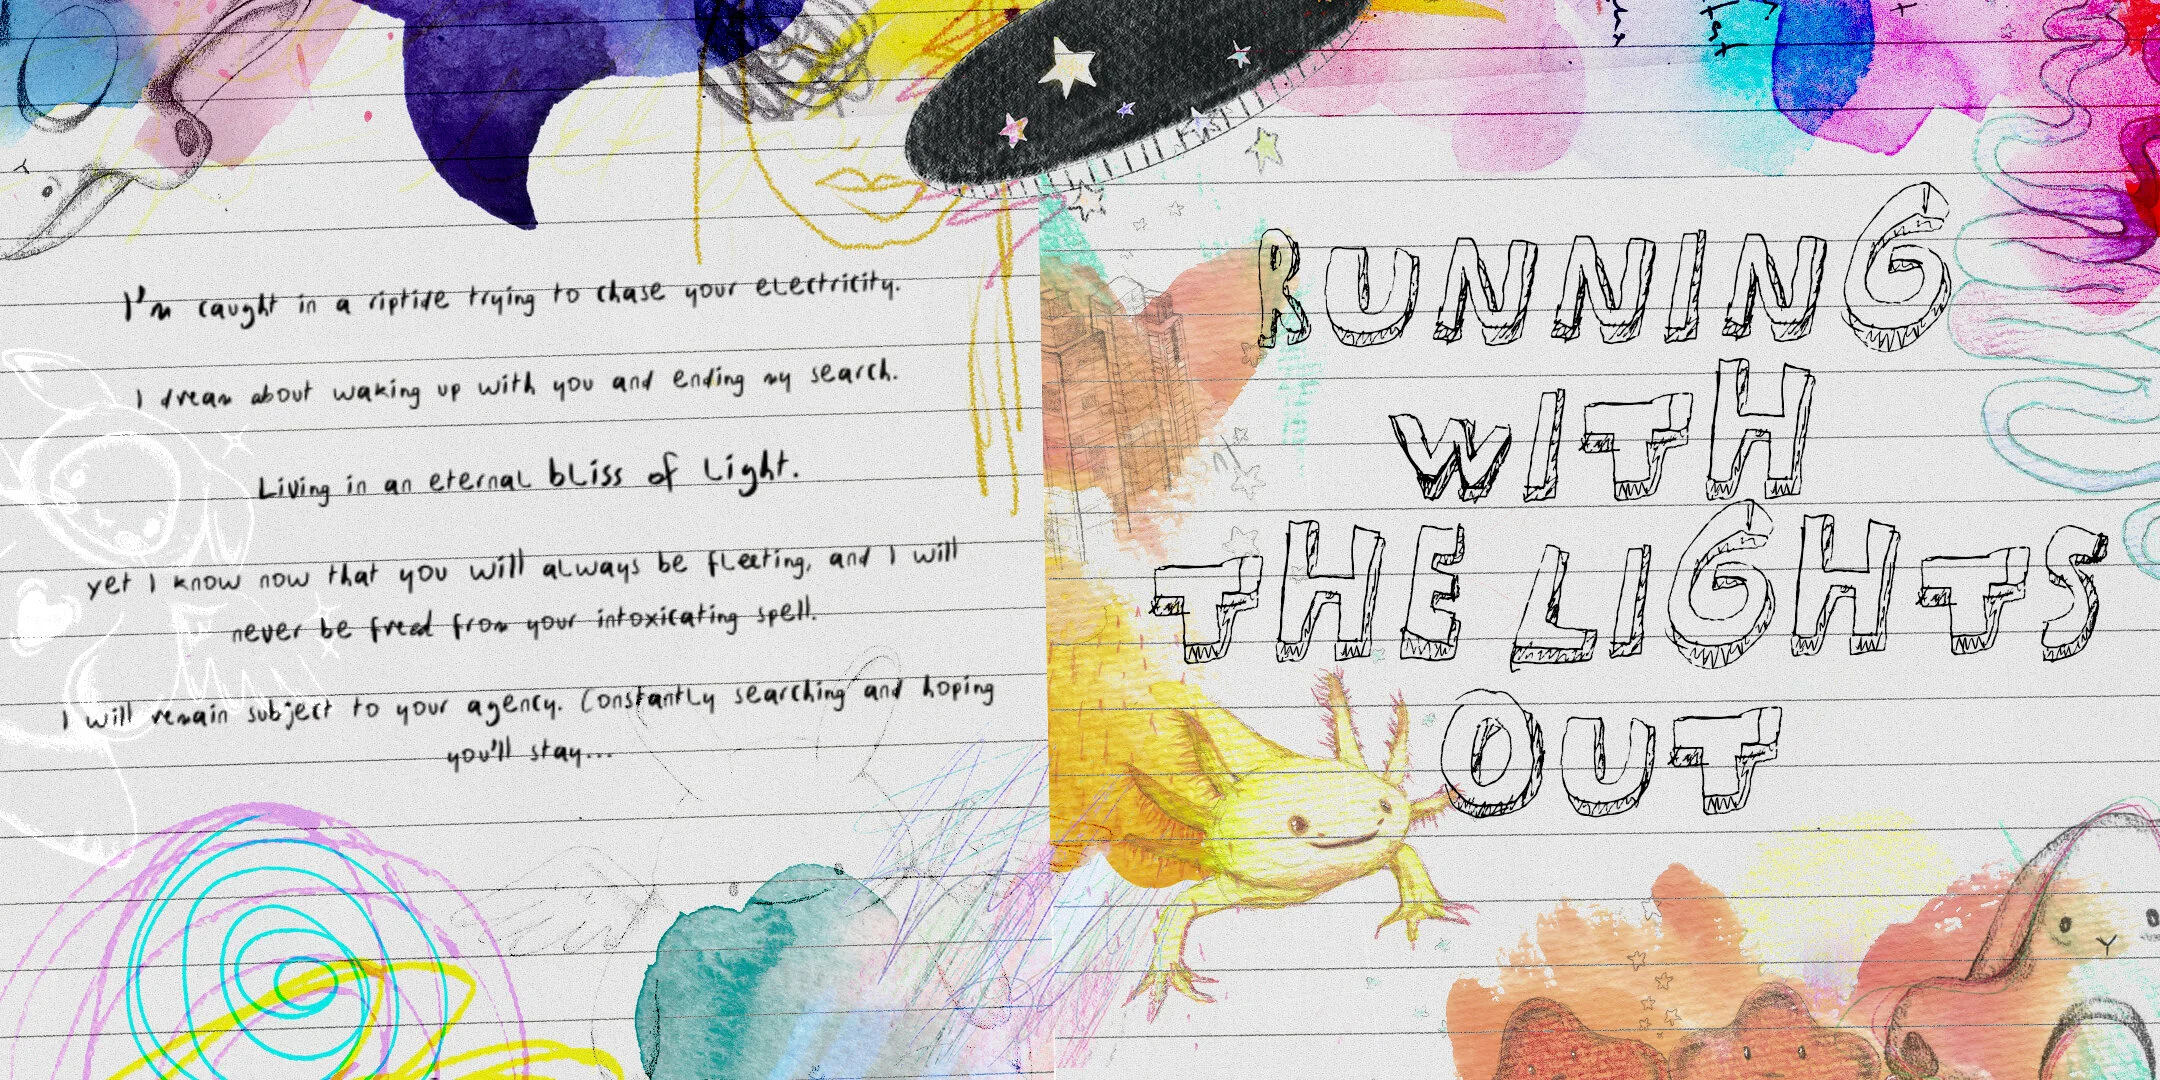 I'm caught in a riptide trying to chase your electricity.
I dream about waking up with you and ending my search.
Living in an eternal bliss of light.
yet I know now that you will always be fleeting, and I will
never be freed from your intoxicating spell.
I will remain subject to your agency. Constantly searching and hoping
you'll stay...
RUNNING
WITH
THE LIGHTS
OUT